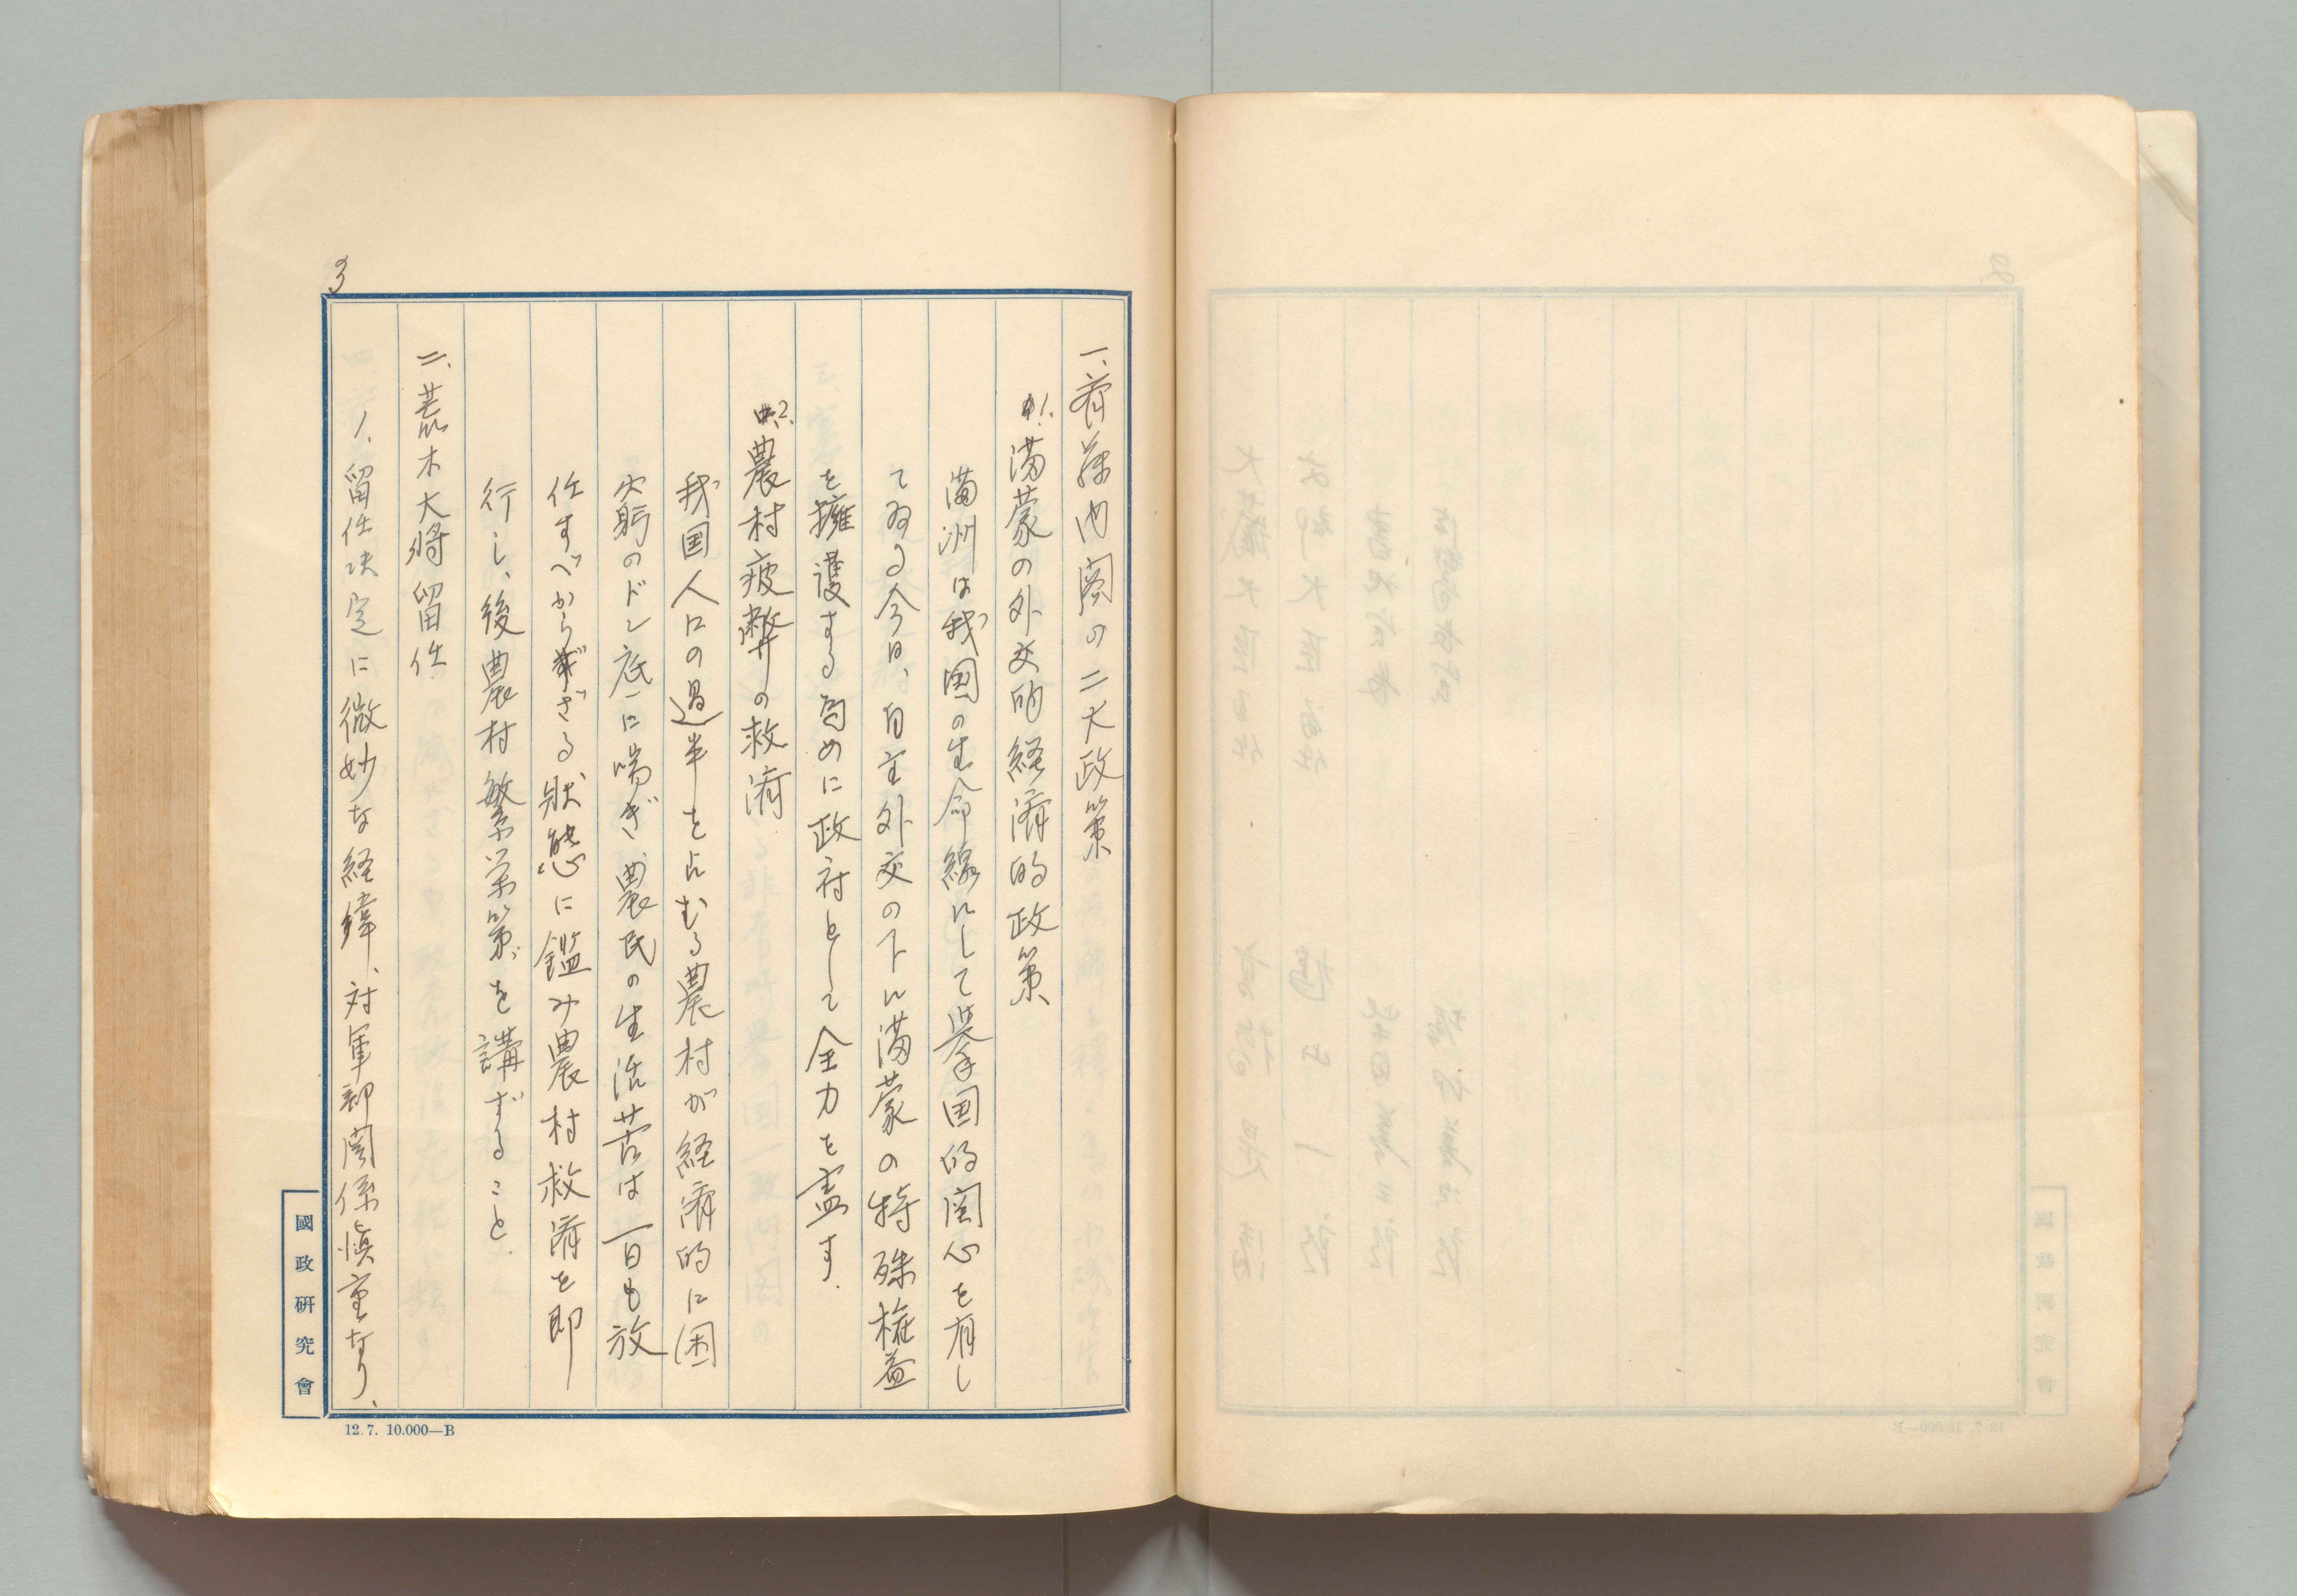 3
一、斉藤内閣の二大政策
1. 満蒙の外交的経済的政策
満洲は我国の生命線にして挙国的関心を有し
てゐる今日、自主外交の下に満蒙の特殊権益
を擁護する為めに政府として全力を盡す.
2. 農村疲弊の救済
我国人口の過半を占むる農村が経済的に困
窮のドン底に喘ぎ、農民の生活苦は一日も放
任すべからざる状態に鑑み農村救済を即
行し、後農村繁栄策を講ずること.
二、荒木大将留任
1. 留任決定に微妙な経緯、対軍部関係慎重なり、
國政研究會
12.7. 10.000—B